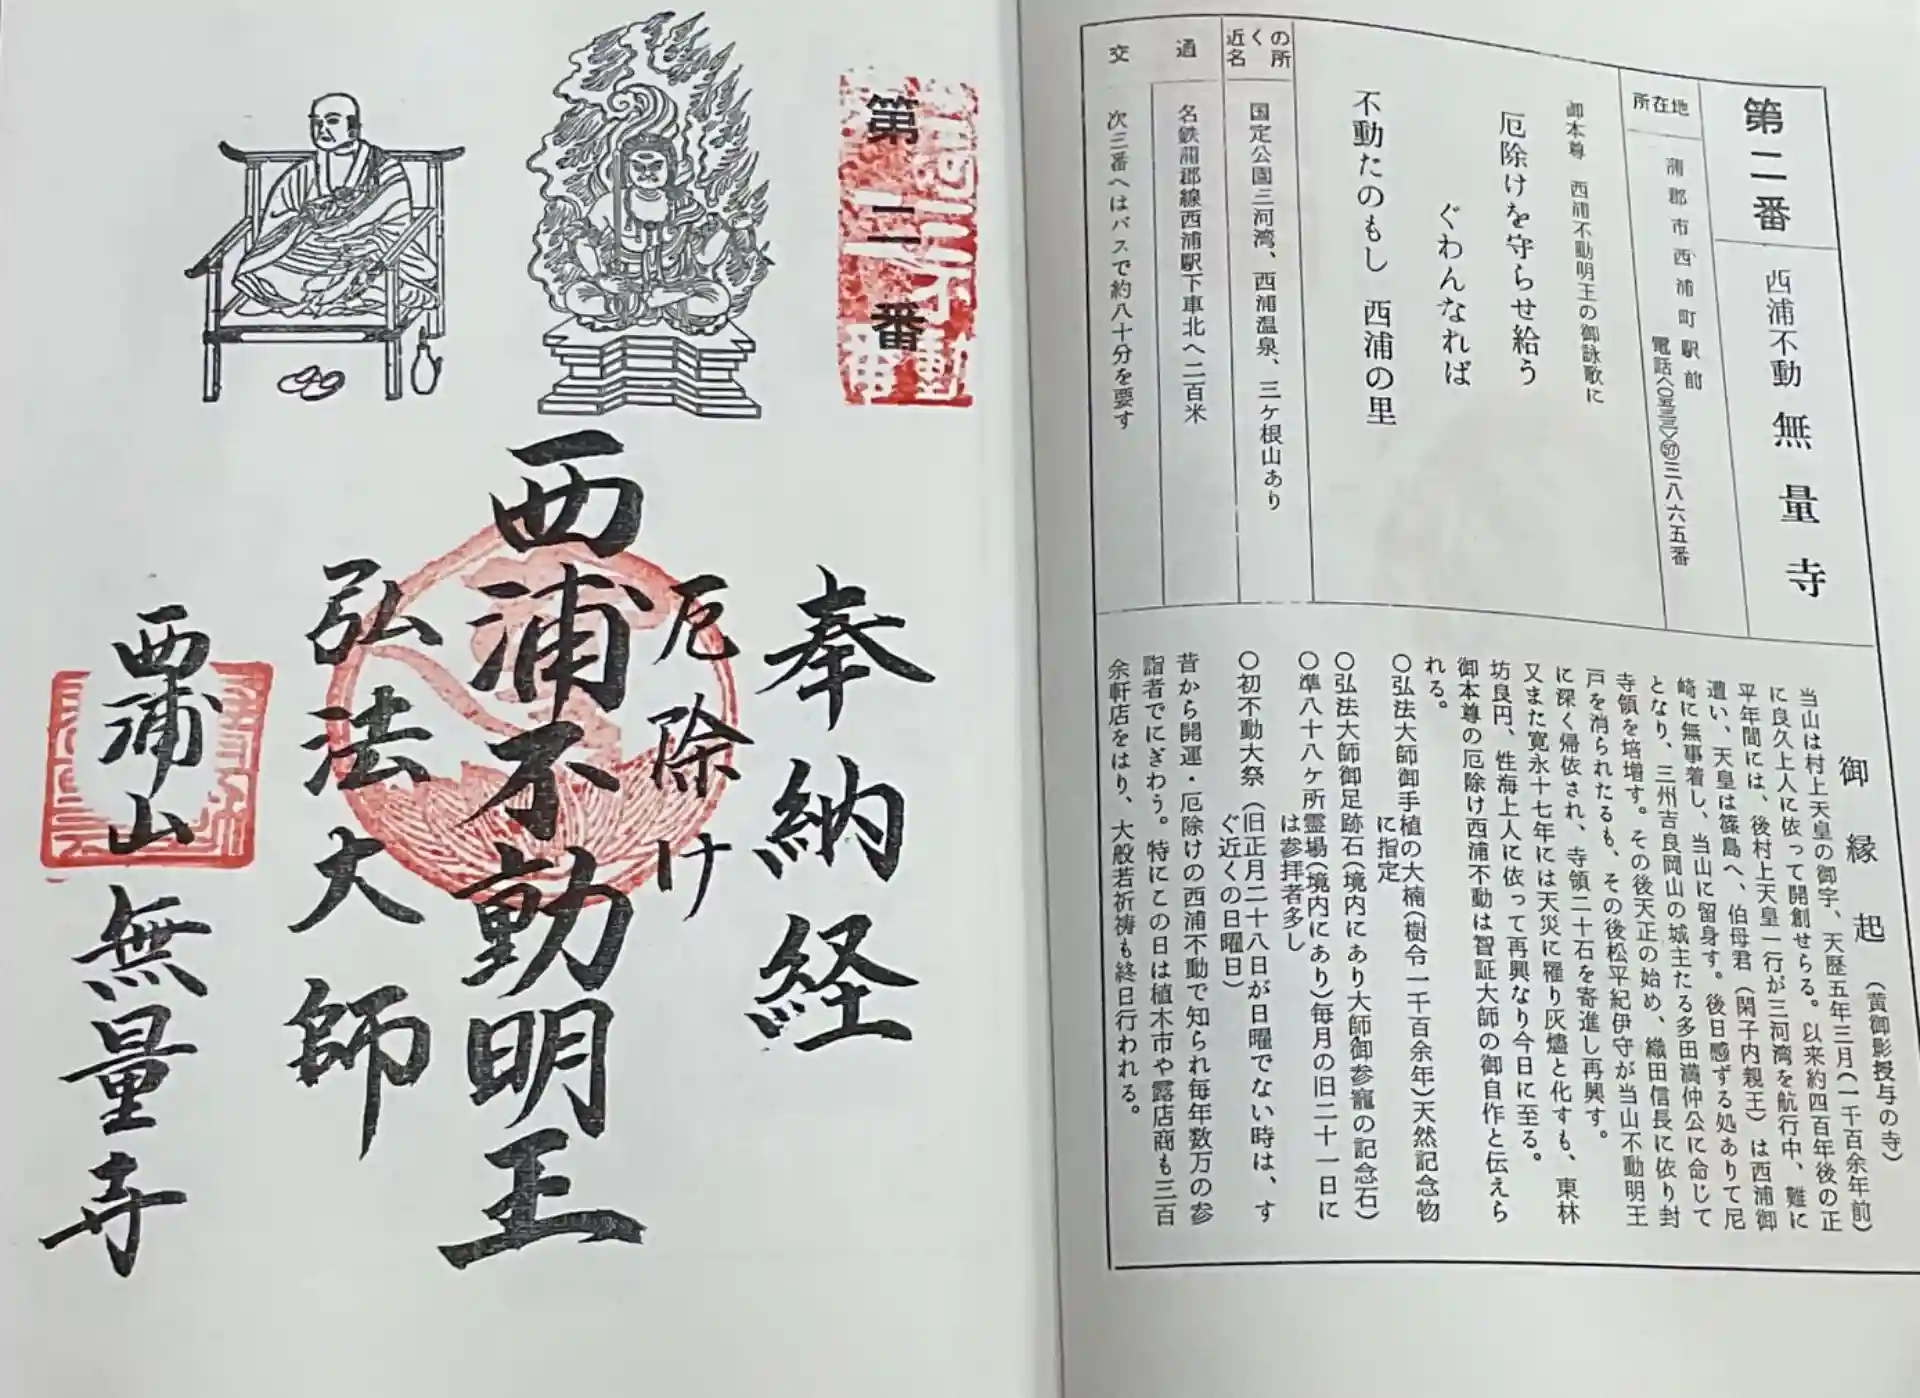 第二番
西浦不動 無量寺
所在地
蒲郡市西浦町駅前
電話〈〇五三三〉57三八六五番
御本尊 西浦不動明王の御詠歌に
厄除けを守らせ給う
ぐわんなれば
不動たのもし 西浦の里
近くの名所
国定公園三河湾、西浦温泉、三ケ根山あり
交通
名鉄蒲郡線西浦駅下車北へ二百米
次三番へはバスで約八十分を要す
御縁起(黄御影授与の寺)
当山は村上天皇の御宇、天歴五年三月(一千百余年前)
に良久上人に依って開創せらる。以来約四百年後の正
平年間には、後村上天皇一行が三河湾を航行中、難に
遭い、天皇は篠島へ、伯母君(閑子内親王)は西浦御
崎に無事着し、当山に留身す。後日感ずる処ありて尼
となり、三州吉良岡山の城主たる多田満仲公に命じて
寺領を培増す。その後天正の始め、織田信長に依り封
戸を消られたるも、その後松平紀伊守が当山不動明王
に深く帰依され、寺領二十石を寄進し再興す。
又また寛永十七年には天災に罹り灰燼と化すも、東林
坊良円、性海上人に依って再興なり今日に至る。
御本尊の厄除け西浦不動は智証大師の御自作と伝えら
れる。
〇弘法大師御手植の大楠(樹令一千百余年)天然記念物
に指定
〇弘法大師御足跡石(境内にあり大師御参寵の記念石)
〇準八十八ケ所霊場(境内にあり)毎月の旧二十一日に
は参拝者多し
〇初不動大祭(旧正月二十八日が日曜でない時は、す
ぐ近くの日曜日)
昔から開運・厄除けの西浦不動で知られ毎年数万の参
詣者でにぎわう。特にこの日は植木市や露店商も三百
余軒店をはり、大般若祈祷も終日行われる。
第二番
奉納経
厄除け
西浦不動明王
弘法大師
西浦山 無量寺